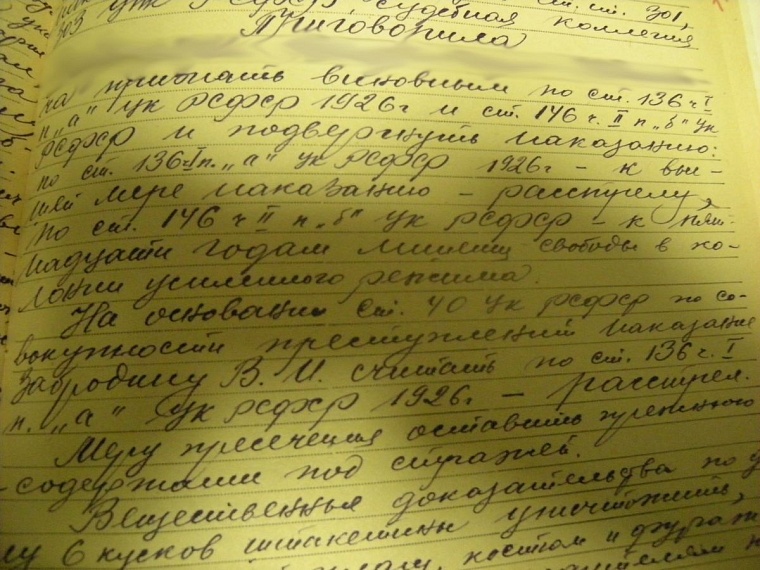 303 УПК РСФСР судебная коллегия ст. ст. 301,
Приговорила
признать виновным по ст. 136 ч I
п. „а" УК РСФСР 1926г и ст. 146 ч. II п „б" УК
РСФСР и подвергнуть наказанию:
по ст. 136-I п. „а" УК РСФСР 1926г – к выс-
шей мере наказанию – расстрелу,
по ст. 146 ч II п „б" УК РСФСР – к пят-
надцати годам лишения свободы в ко-
лонии усиленного режима.
На основании ст. 40 УК РСФСР по со-
вокупности преступлений наказание
Забродину В. И. считать по ст. 136 ч. I
п. „а" УК РСФСР 1926г – расстрел.
Меру пресечения оставить прежнюю
- содержание под стражей.
Вещественные доказательства по
6 кусков штакетин уничтожить,
костюм и